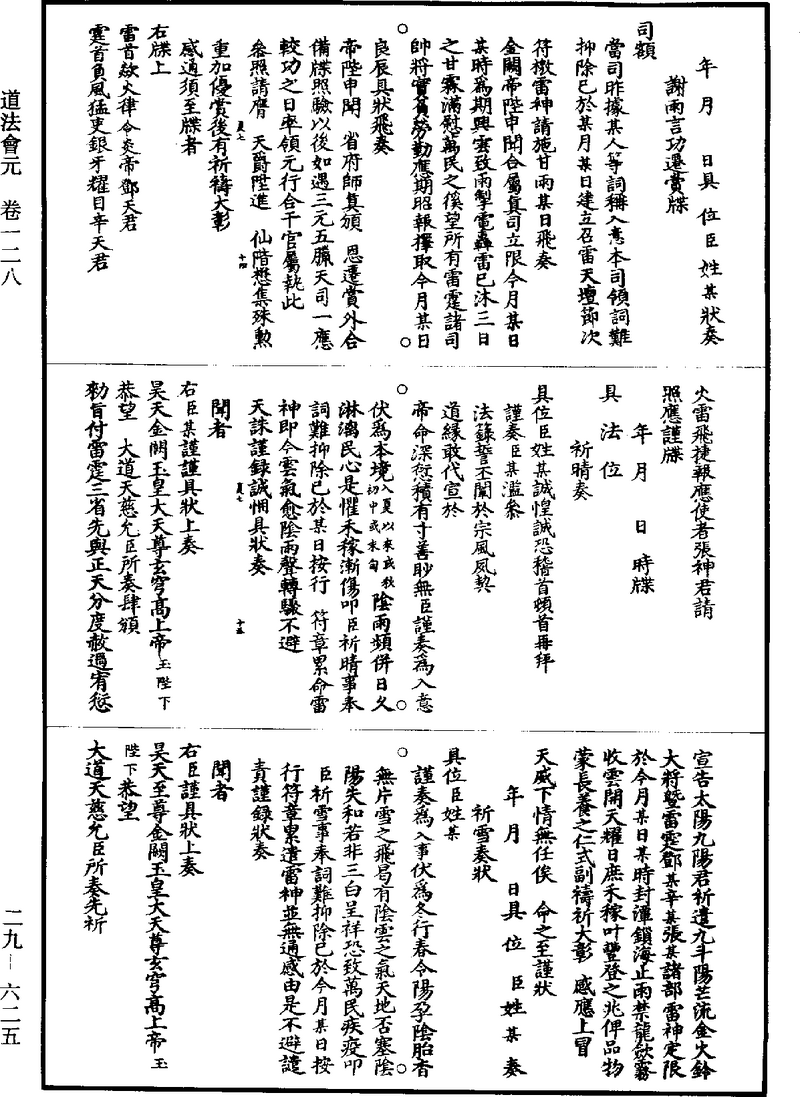 年　月　　日具　位　臣　姓　某　狀奏
謝雨言功遷賞牒
司額
當司昨據某人等詞稱入意本司領詞難
抑除已於某月某日建立召雷天壇節次
符檄雷神請施甘雨某日飛奏
金闕帝陛申聞合屬真司立限今月某日
某時為期興雲致雨掣電轟雷已沐三日
之甘霖滿慰萬民之徯望所有雷霆諸司
帥將實負勞勤應期昭報擇取今月某日
良辰具狀飛奏
帝陛申聞　省府師真頒　恩遷賞外合
備牒照驗以後如遇三元五臘天司一應
較功之日率領元行合干官屬執此
參照請膺　天爵陞進　仙階懋集殊勳
重加優賞後有祈禱大彰
感通須至牒者
右牒上
雷首歘火律令炎帝鄧天君
霆首負風猛吏銀牙耀目辛天君
火雷飛捷報應使者張神君請
照應謹牒
年　月　　日　時牒
具　法　位
祈晴奏
具位臣姓某誠惶誠恐稽首頓首再拜
謹奏臣某濫叅
法籙誓不關於宗風夙契
道緣敢代宣於
帝命深愆積有寸善眇無臣謹奏為入意
伏為本境入夏以來或秋初中或末旬陰雨頻併日久
淋漓民心是懼禾稼漸傷叩臣祈晴事奉
詞難抑除已於某日按行　符章累命雷
神即今雲氣愈陰雨聲轉驟不避
天誅謹録誠悃具狀奏
聞者
右臣某謹謹具狀上奏
昊天金闕玉皇大天尊玄穹高上帝玉陛下
恭望　大道天慈允臣所奏肆頒
勑旨付雷霆三省先與正天分度赦過宥愆
宣告太陽九陽君祈遣九斗陽芒流金火鈴
大將暨雷霆鄧某辛某張某諸部雷神定限
於今月某日某時封潭鎖海止雨禁龍歛霧
收雲開天耀日庶禾稼叶豐登之兆俾品物
蒙長養之仁式副禱祈大彰　感應上冒
天威下情無任俟　命之至謹狀
年　月　　日具　位　臣　姓　某　奏
祈雪奏狀
具位臣姓某
謹奏為入事伏為冬行春令陽孕陰胎杳
無片雪之飛曷有陰雲之氣天地否塞陰
陽失和若非三白呈祥恐致萬民疾疫叩
臣祈雪事奉詞難抑除已於今月某日按
行符章累遣雷神並無通感由是不避譴
責謹録狀奏
聞者
右臣謹具狀上奏
昊天至尊金闕玉皇大天尊玄穹高上帝玉
陛下恭望
大道天慈允臣所奏先祈
道法會元　卷一二八
二九－六二五